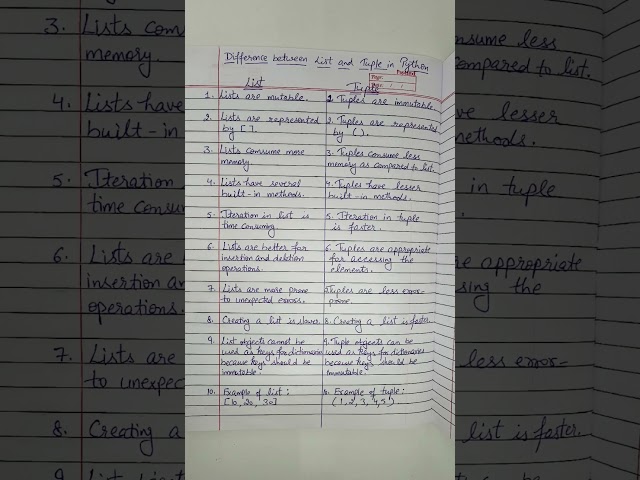 Difference between List and Tuple in Python
List
1. Lists are mutable.
2. Lists are represented
by [ ].
3. Lists comsume more
memory.
4. Lists have several
built-in methods.
5. Iteration in list is
time consuming.
6. Lists are better for
insertion and deletion
operations.
7. Lists are more prone
to unexpected errors.
8. Creating a list is slower.
9. List objects cannot be
used as keys for dictionaries
because keys should be
immutable.
10. Example of list:
[10, 20, 30]
Tuple
1. Tuples are immutable.
2. Tuples are represented
by ( ).
3. Tuples consume less
memory as compared to list.
4. Tuples have lesser
built-in methods.
5. Iteration in tuple
is faster.
6. Tuples are appropriate
for accessing the
elements.
7. Tuples are less error-
prone.
8. Creating a list is faster.
9. Tuple objects can be
used as keys for dictionaries
because keys should be
immutable.
10. Example of tuple:
(1, 2, 3, 4, 5).
3. Lists com
memory.
4. Lists have
built-in
5. Iteration
time consu
6. Lists are
insertion an
operations.
7. Lists are
to unexpec
8. Creating a
nsume less
compared to list.
ve lesser
methods.
in tuple
re appropriate
sing the
less error-
list is faster.